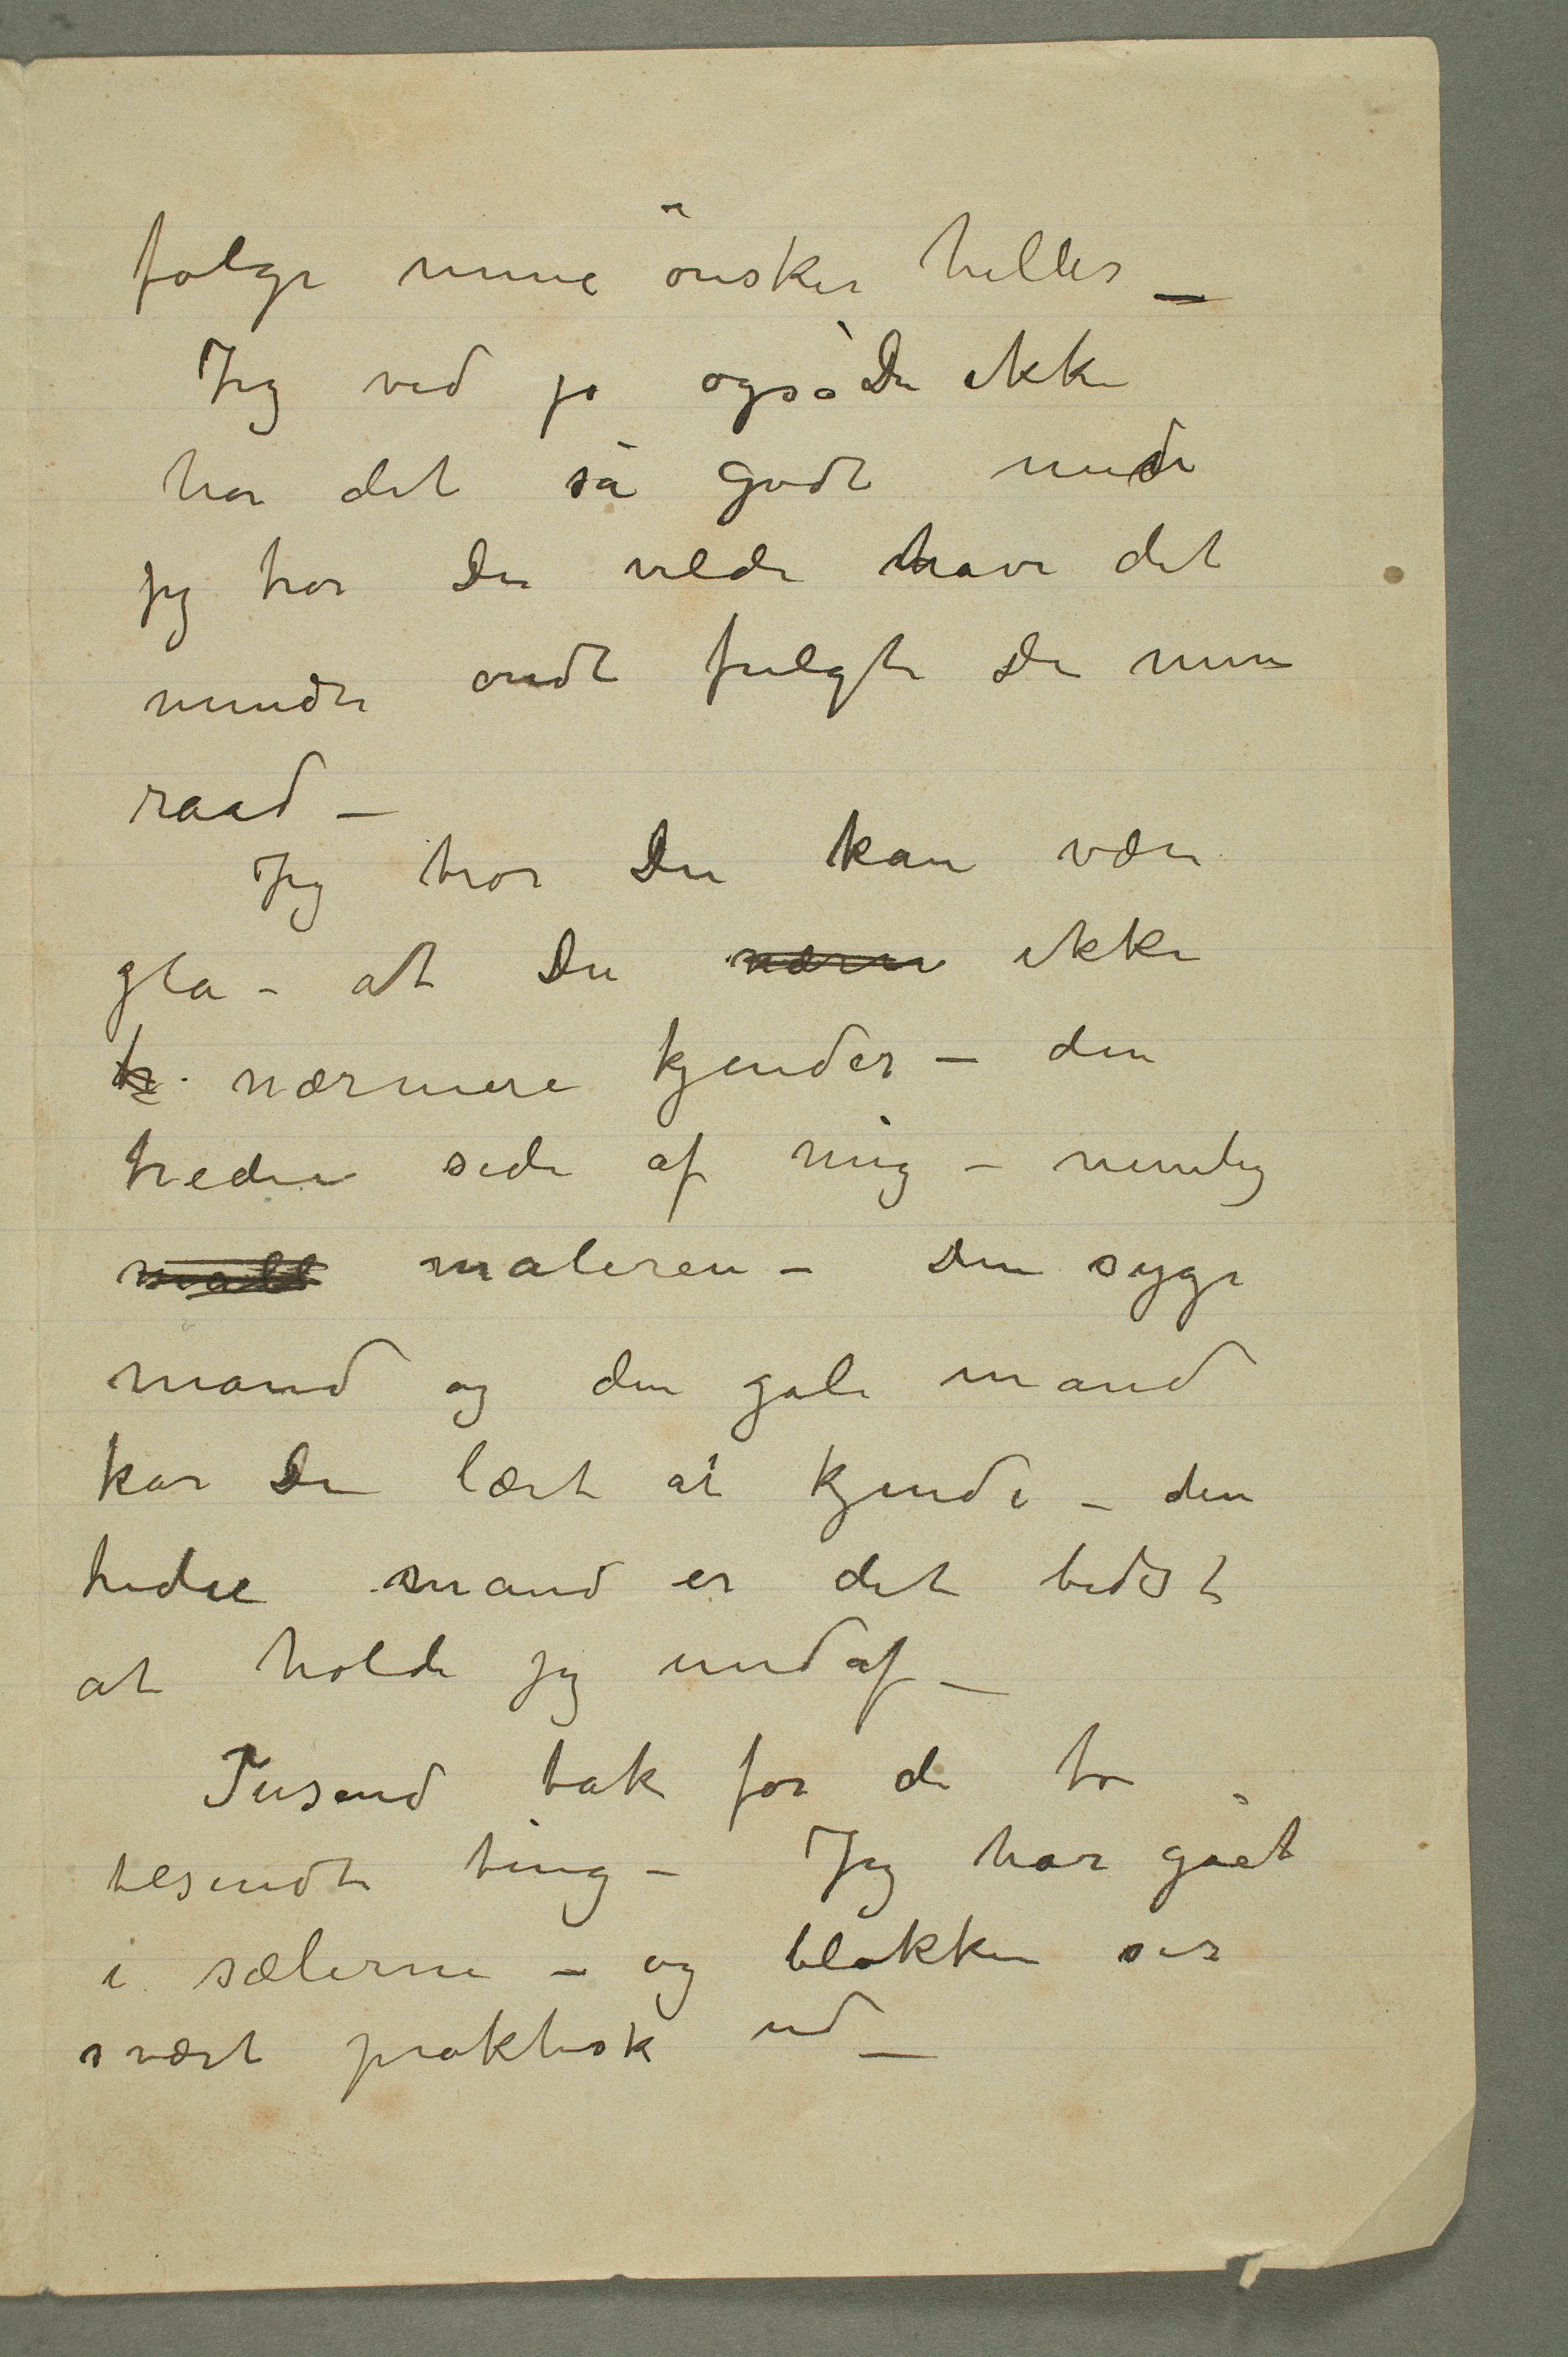 følge mine ønsker heller _
Jeg ved jo også Du ikke
har det så godt men
jeg tror Du vilde have det
mindre ondt fulgte Du mine
raad –
Jeg tror Du kan være
gla – at Du nærm ikke
kj nærmere kjender – den
tredie side af mig – nemlig
malt maleren – Den syge
mand og den gale mand
har Du lært at kjende – den
tredie mand er det bedst
at holde jeg undaf –
Tusend tak for de to
tilsendte ting – Jeg har gået
i sælerne – og blokken ser
svært praktisk ud –